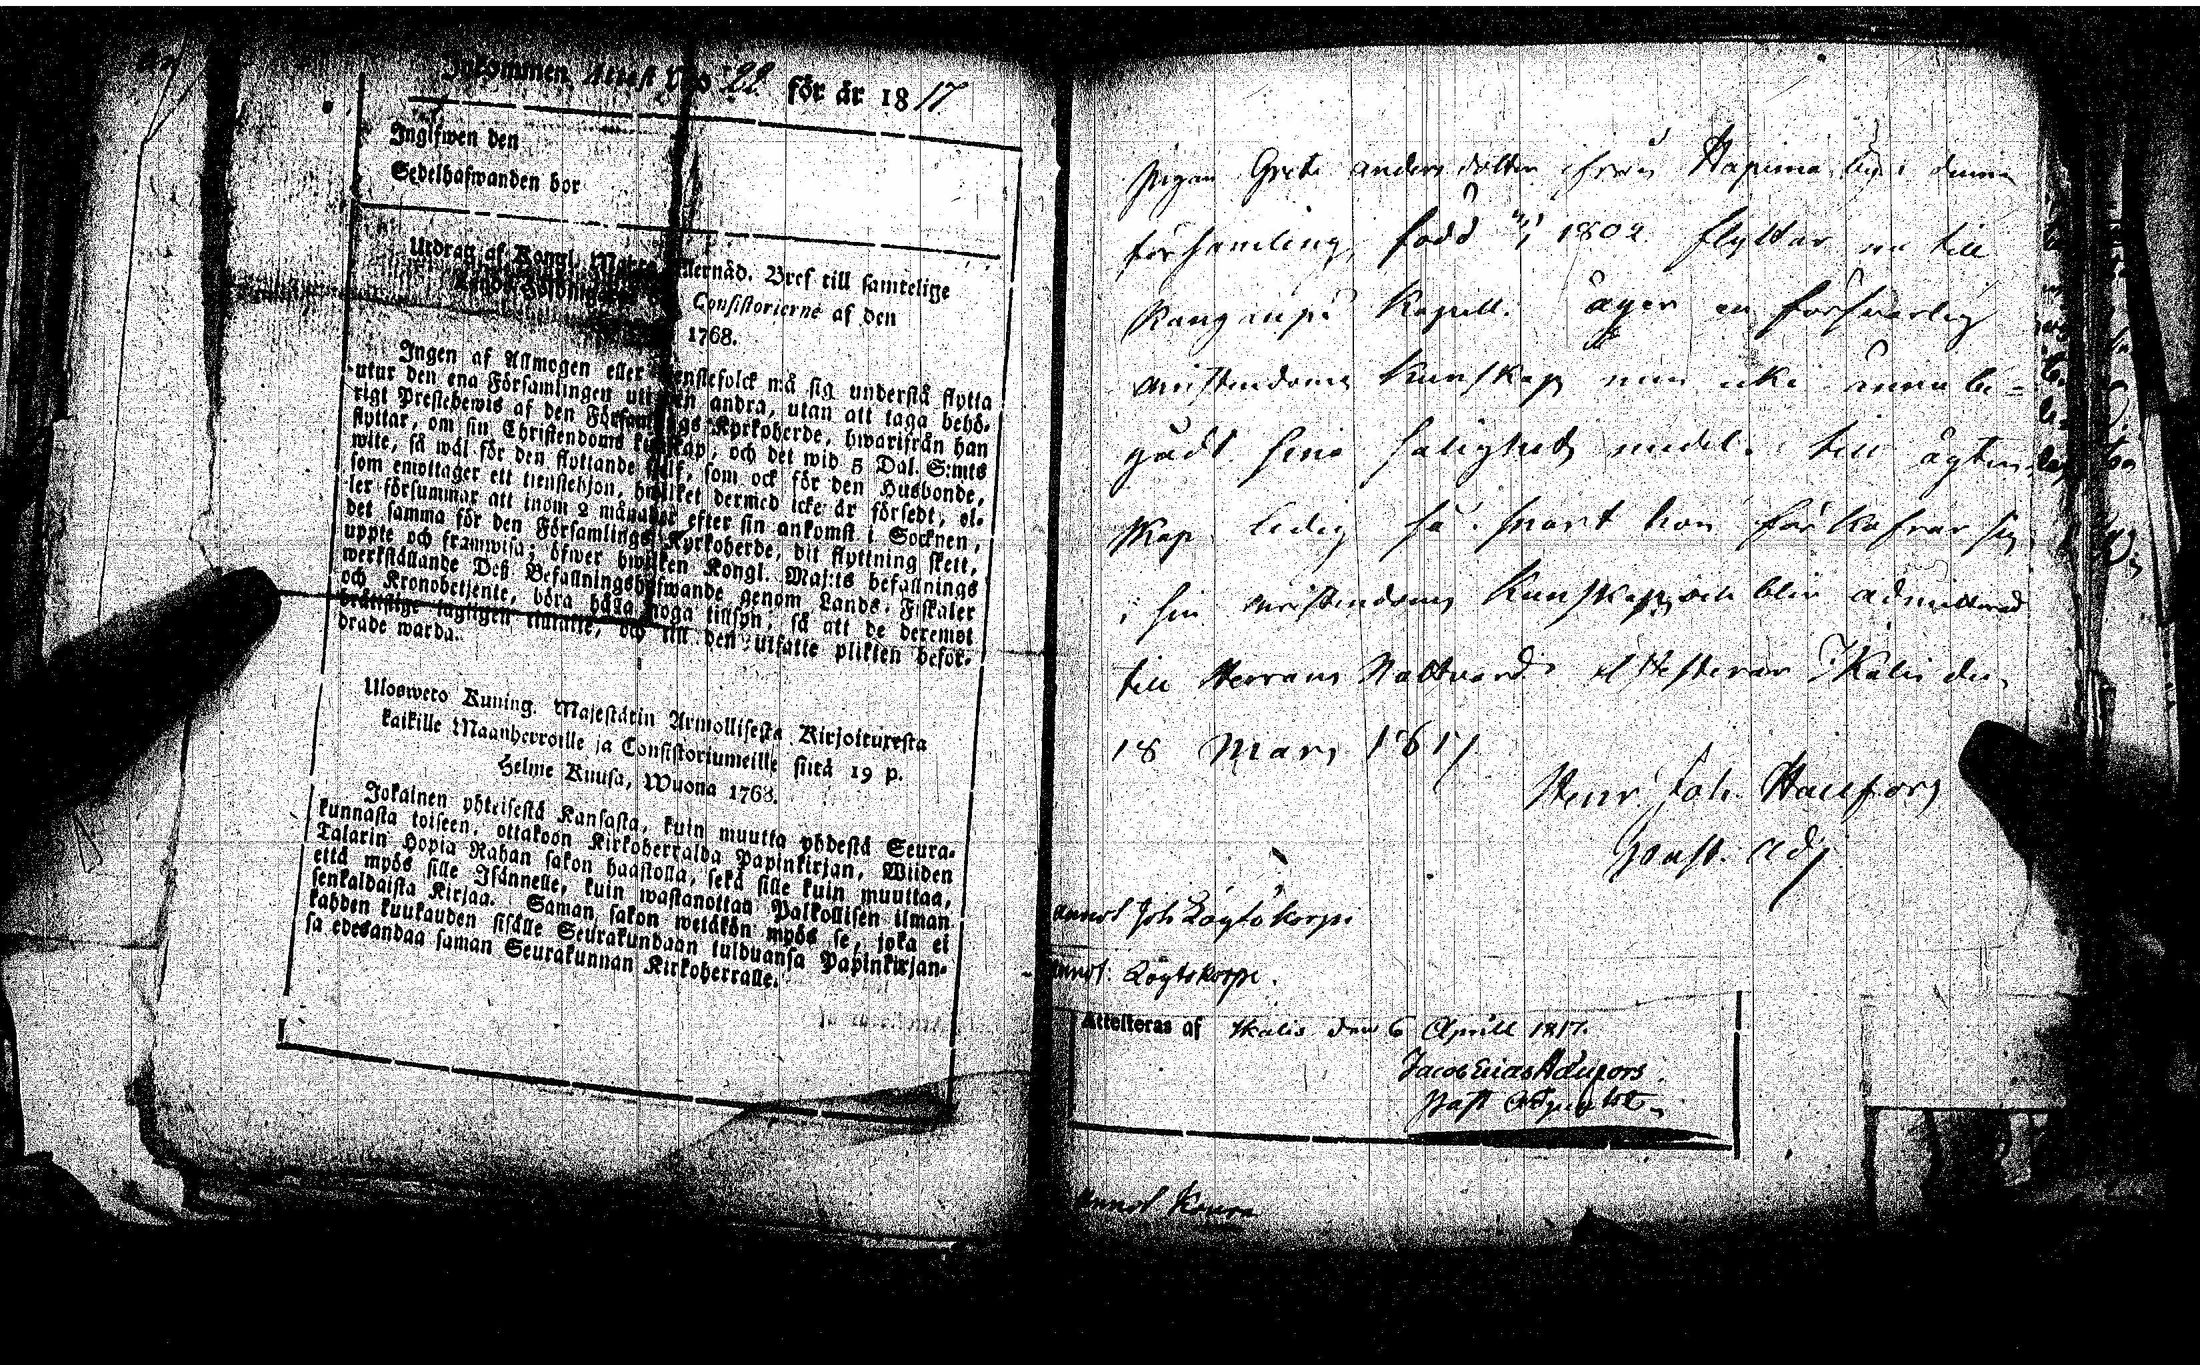 Inkommen Attest N:o 22 för år 1817
Inglfwen den
Sedelhafwanden bor
Utdrag af Kongl. Nernåd. Bref till samtelige
Consistorierne af den
1768.
Ingen af Allmogen eller enstefolck må sig understå flytta
utur den ena Församlingen uti den andra, utan att taga behö-
rigt Prestebewis af den Församlings Kyrkoherde, hwarifrån han
flyttar, om sin Christendoms kunskap, och det wid 5 Dal. S:mts
wite, så wäl för den flyttande sielf, som ock för den Husbonde,
som emottager ett tienstehjon, hwilket dermed icke är försedt, el-
ler försummar att inom 2 månader efter sin ankomst i Socknen,
det samma för den Församlings Kyrkoherde, dit flyttning skett,
uppte och framwisa; öfwer hwilken Kongl. Maj:ts befallnings
werkställande Deß Befallningshafwande genom Lands-Fiskaler
och Kronobetjente, böra hålla noga tillsyn, så att de deremot
brättslige lagligen tilltalte, och till den utsatte plikten beför-
drade warda.
Uloswero Kuning. Majestätin Armollisesta Kirjoituxesta
kaikille Maanherroille ja Consistoriumeille siitä 19 p.
Helme Kuusa, Wuona 1768.
Jokainen yhteisestä Kansasta, kuin muutta yhdestä Seura-
kunnasta toiseen, ottakoon Kirkoherralda Papinkirjan, Wiiden
Talarin Hopia Rahan sakon haastolla, sekä sille kuin muuttaa,
että myös sille Isännelle, kuin wastanottaa Palkollisen ilman
senkaldaista Kirjaa. Saman sakon wetäkön myös se, joka ei
kahden kuukauden sisälle Seurakundaan tulduansa Papinkirjan-
sa edesandaa saman Seurakunnan Kirkoherralle.
Pigan Greta Anders dotter ifrån by i denna
församling, född 1802 flyttar nu till
Kangunpä Kapell. äger en försvarlig
Christendoms kunskap men icke ännu be-
gådt sine salighets medel. till ägten-
skap ledig så snart hon förkofrar sig
i sin Christendoms Kunskap och blir admitterad
till Herrans Nattvard attesterar Ikalis den
18 Mars 1817
Henr Joh. Hallfors
Past. Adj
Annot Joh Löytökorpi
Annot. Löytökorpi.
Attesteras af Ikalis den 6 Aprill 1817.
Jacob
Past
Annot